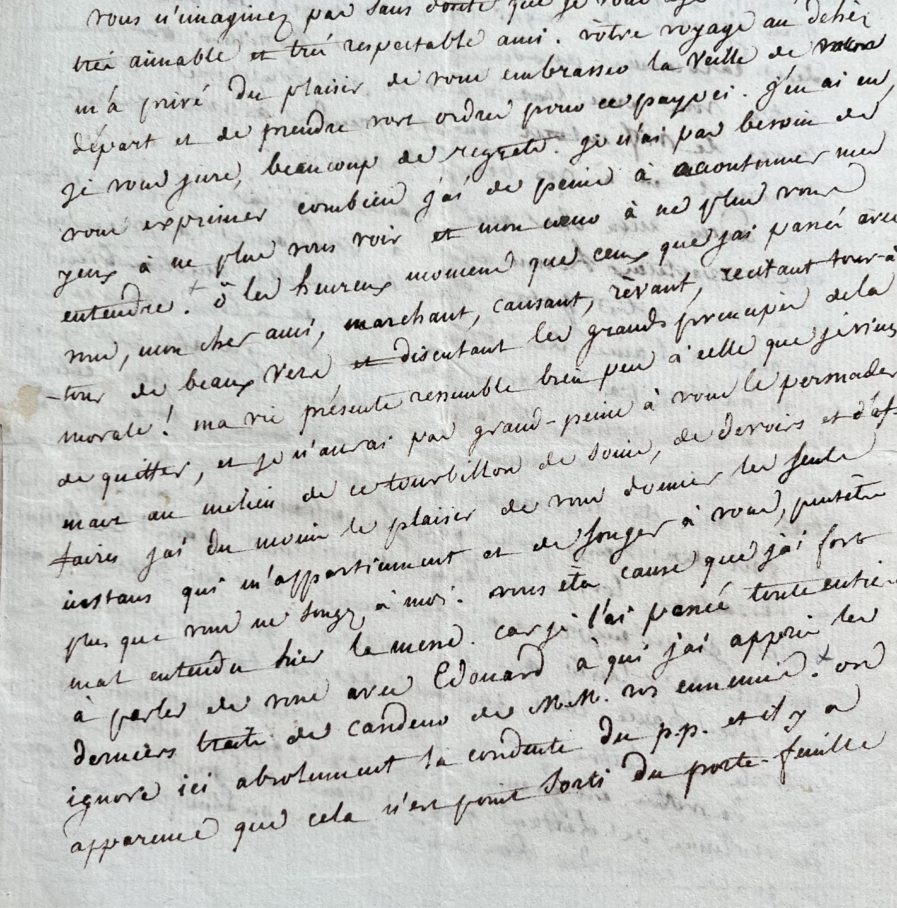 vous n'imaginez pas sans doute que je vous
très aimable et très respectable ami. vôtre voyage au
m'a privé du plaisir de vous embrasser la veille de
départ et de prendre vos ordres pour ce pays ci. j'en ai eu,
je vous jure, beaucoup de regrets. je n'ai pas besoin de
vous exprimer combien j'ai de peine à accoutumer mes
yeux à ne plus vous voir et mon cœur à ne plus vous
entendre. + ô les heureux momens que ceux que j'ai passés avec
vous, mon cher ami, marchant, causant, rêvant, recitant tour-à
-tour de beaux vers et discutant les grands principes de la
morale! ma vie présente ressemble bien peu à celle que je viens
de quitter, et je n'aurai pas grand-peine à vous le persuader
mais au milieu de ce tourbillon de soins, de devoirs et d'af-
faires j'ai du moins le plaisir de vous donner les seuls
instans qui m'appartiennent et de songer à vous, peutêtre
plus que vous ne songez à moi. vous êtes cause que j'ai fort
mal entendu hier la messe. car je l'ai passée toute entière
à parler de vous avec Edouard à qui j'ai appris les
derniers traits de candeur de M.M. vos ennemis. + on
ignore ici absolument la conduite du p.p. et il y a
apparence que cela n'est point sorti du porte-feuille